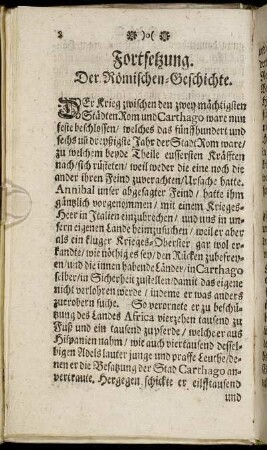 2 ❀ )o( ❀
Fortsetzung.
Der Römischen-Geschichte.
DEr Krieg zwischen den zwey mächtigsten
Städten Rom und Carthago ware nun
feste beschlossen/ welches das fünffhundert und
sechs uñ dreyßigste Jahr der Stadt Rom ware/
zu welchem beyde Theile eussersten Kräfften
nach sich rüsteten/ weil weder die eine noch die
ander ihren Feind zuverachten/ Ursache hatte.
Annibal unser abgesagter Feind/ hatte ihm
gäntzlich vorgenommen/ mit einem Krieges-
Heer in Italien einzubrechen/ und uns in un-
sern eigenen Lande heimzusuchen/ weil er aber
als ein kluger Krieges-Oberster gar wol er-
kandte/ wie nöthig es sey/ den Rücken zubefrey-
en/ und die innen habende Länder/ in Carthago
selber/ in Sicherheit zustellen/ damit das eigene
nicht verlohren werde/ indeme er was anders
zuerobern suche. So verornete er zu beschü-
tzung des Landes Africa vierzehen tausend zu
Fuß und ein tausend zu pferde/ welche er aus
Hispanien nahm/ wie auch viertausend dessel-
bigen Adels lauter junge und praffe Leuthe/ de-
nen er die Besatzung der Stad Carthago an-
vertrauete. Hergegen schickte er eilfftausend
und